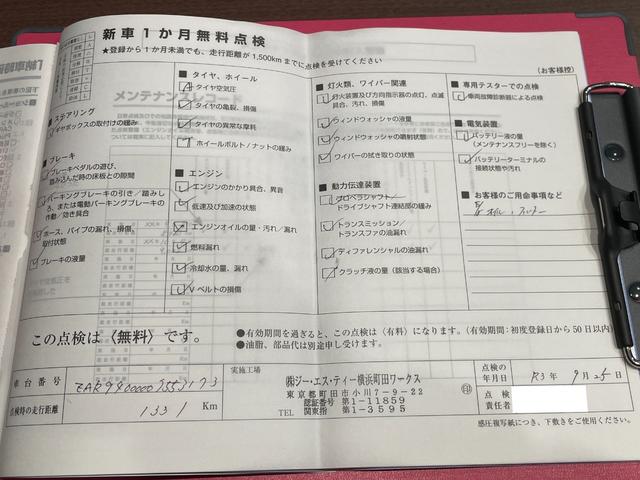 新車1か月無料点検
★登録から1か月未満でも、走行距離が1,500kmまでに点検を受けてください
(お客様控)
■ステアリング
ギヤボックスの取付けの緩み
■ブレーキ
ブレーキペダルの遊び、
踏み込んだ時の床板との隙間
パーキングブレーキの引き/踏みしろ、または電動パーキングブレーキの
作動/効き具合
ホース、パイプの漏れ、損傷、
取付状態
ブレーキの液量
■タイヤ、ホイール
タイヤ空気圧
タイヤの亀裂、損傷
タイヤの異常な摩耗
ホイールボルト/ナットの緩み
■エンジン
エンジンのかかり具合、異音
低速及び加速の状態
エンジンオイルの量・汚れ/漏れ
燃料漏れ
冷却水の量、漏れ
Vベルトの損傷
■灯火類、ワイパー関連
灯火装置及び方向指示器の点灯、点滅
具合、汚れ、損傷
ウィンドウォッシャの液量
ウィンドウォッシャの噴射状態
ワイパーの拭き取りの状態
■動力伝達装置
プロペラシャフト/
ドライブシャフト連結部の緩み
トランスミッション/
トランスファの油漏れ
ディファレンシャルの油漏れ
クラッチ液の量(該当する場合)
■専用テスターでの点検
車両故障診断器による点検
■電気装置
バッテリー液の量
(メンテナンスフリーを除く)
バッテリーターミナルの
接続状態や汚れ
■お客様のご用命事項など
この点検は〈無料〉です。
●有効期間を過ぎると、この点検は〈有料〉になります。(有効期間:初度登録日から50日以内)
●油脂、部品代は別途申し受けます。
車台番号
点検時の走行距離 1331 Km
実施工場
㈱ジー・エス・ティー横浜町田ワークス
東京都町田市小川7-9-22
認証番号 第1-11859
TEL 関東指 第1-3595
印
点検の
年月日 R3年 9月25日
点検
責任者
感圧複写紙につき、下敷きをご使用ください。